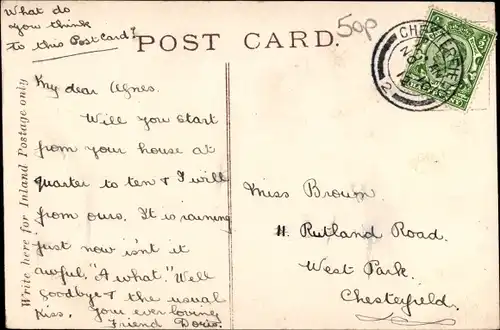 What do
you think
to this Postcard?
50p
POST CARD.
CHESTERFIELD
2
Write here for Inland Postage only
My dear Agnes.
Will you start
from your house at
quarter to ten & I will
from ours. It is raining
just now isn't it
awful. "A what." Well
Goodbye & the usual
Kiss. Your ever loving
Friend Doris.
Miss Brown.
11. Rutland Road.
West Park.
Chesterfield.